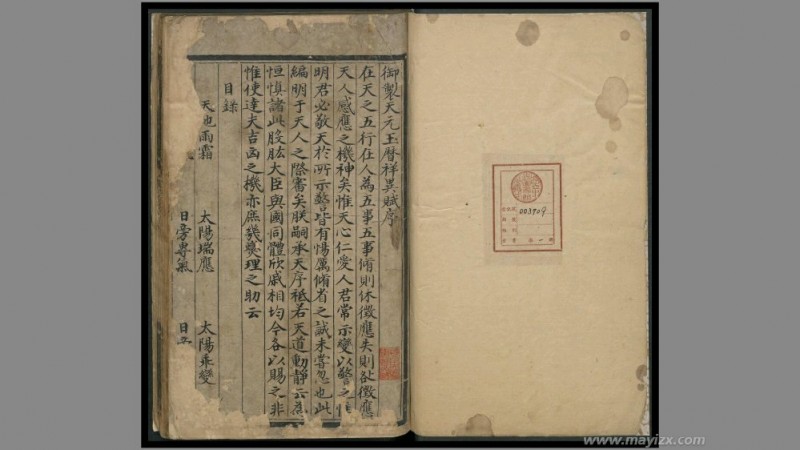 御製天元玉曆祥異賦序
在天之五行在人為五事五事脩則休徵應失則咎徵應
天人感應之機神矣惟天心仁愛人君常示變以警之惟
明君必敬天於所示警皆有惕厲脩省之誠未嘗忽也此
編明于天人之際審矣朕嗣承天序祗若天道動靜云為
恒慎諸此股肱大臣與國同體欣戚相均今各以賜之非
惟使達夫吉凶之機亦庶幾燮理之助云
目錄
雨霜 太陽瑞應 太陽乖變
日旁專氣 日
www.mayizx.com